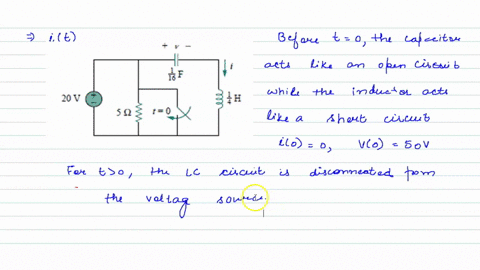 ⇒ i(t)
+ v -
1/16 F
i
20 V
5 Ω
t=0
1/4 H
Before t=0, the capacitor
acts like an open circuit
while the inductor acts
like a short circuit
i(0) = 0, V(0) = 50V
For t>0, the LC circuit is disconnected from
the voltage source.